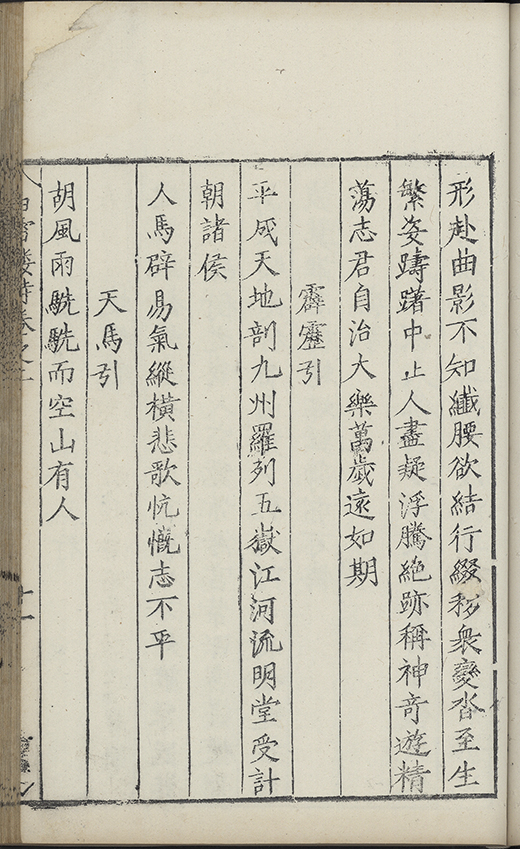 形赴曲影不知纖腰欲結行綴移衆變沓至生
繁姿躊躇中止人盡疑浮騰絶跡稱神奇遊精
蕩志君自治大樂萬歲遠如期
霹靂引
平成天地剖九州羅列五嶽江河流明堂受計
朝諸侯
人馬辟易氣縱橫悲歌忼慨志不平
天馬引
胡風雨駪駪而空山有人